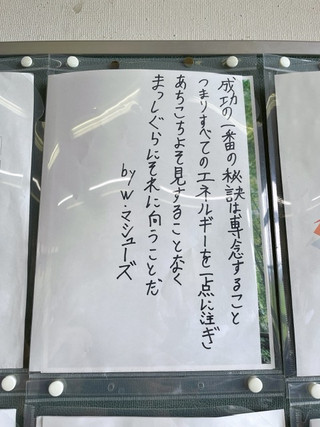 成功の一番の秘訣は専念すること
つまりすべてのエネルギーを一点に注ぎ
あちこちよそ見することなく
まっしぐらにそれに向うことだ
by W・マシューズ